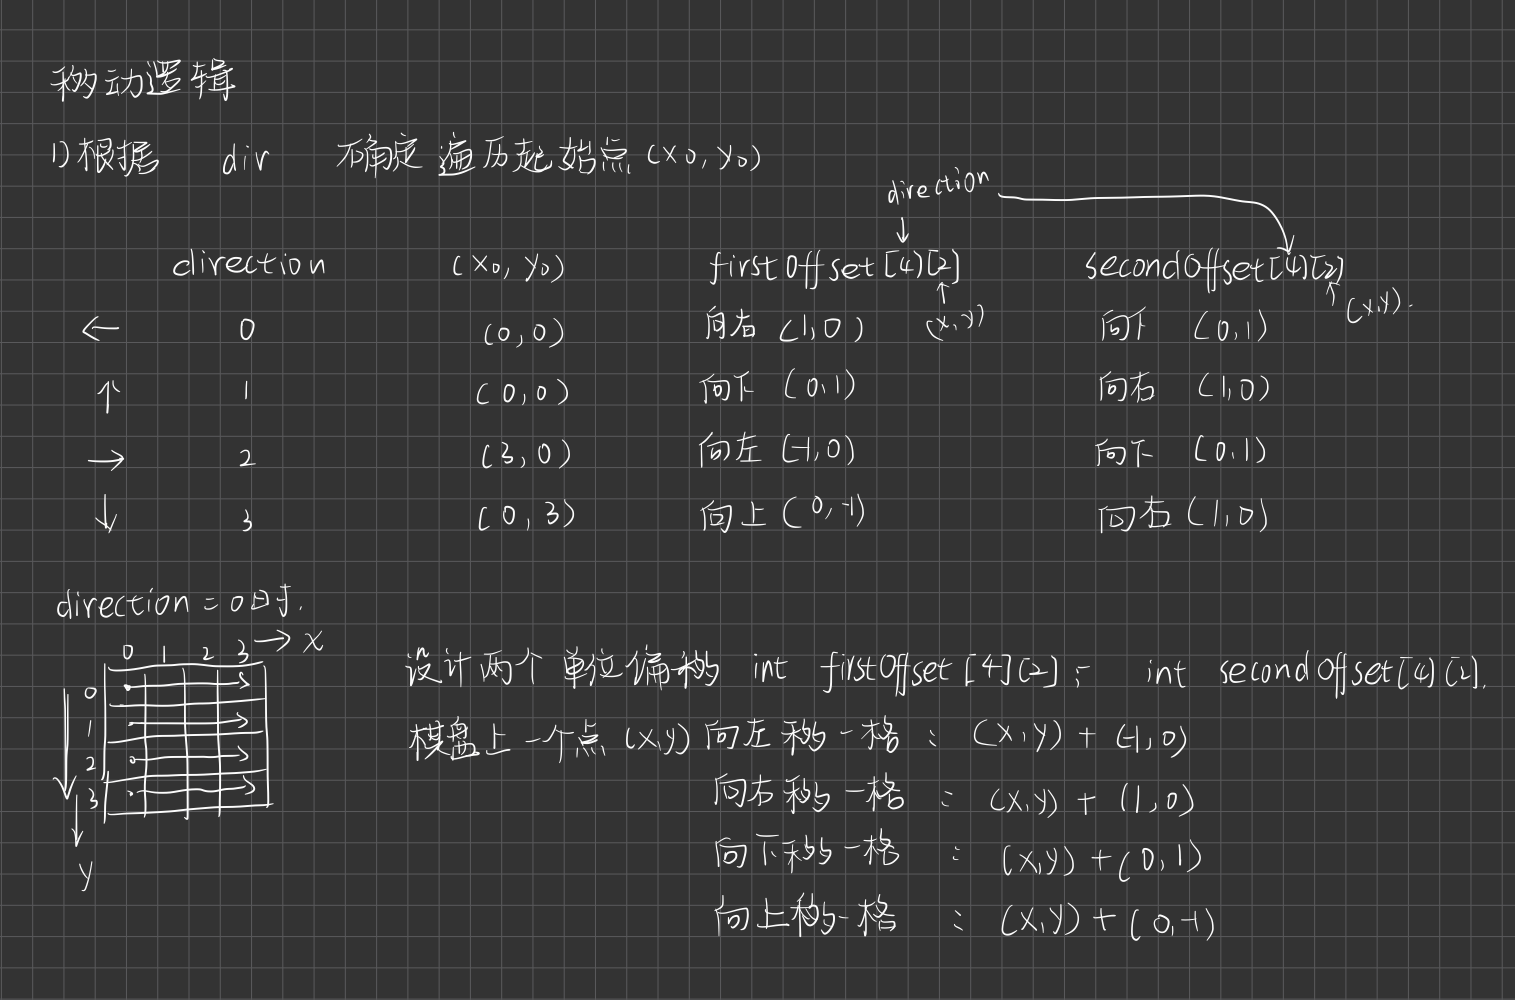 移动逻辑
1) 根据 dir 确定遍历起始点 (x0, y0)
direction
direction (x0, y0) firstOffset[4][2] secondOffset[4][2]
(x,y) (x,y).
← 0 (0,0) 向右 (1,0) 向下 (0,1)
↑ 1 (0,0) 向下 (0,1) 向右 (1,0)
→ 2 (3,0) 向左 (-1,0) 向下 (0,1)
↓ 3 (0,3) 向上 (0,-1) 向右 (1,0)
direction = 0时.
0 1 2 3 → x
0
1
2
3
y
设计两个单位偏移 int firstOffset[4][2]; int secondOffset[4][2].
棋盘上一个点 (x,y) 向左移一格 : (x,y) + (-1,0)
向右移一格 : (x,y) + (1,0)
向下移一格 : (x,y) + (0,1)
向上移一格 : (x,y) + (0,-1)